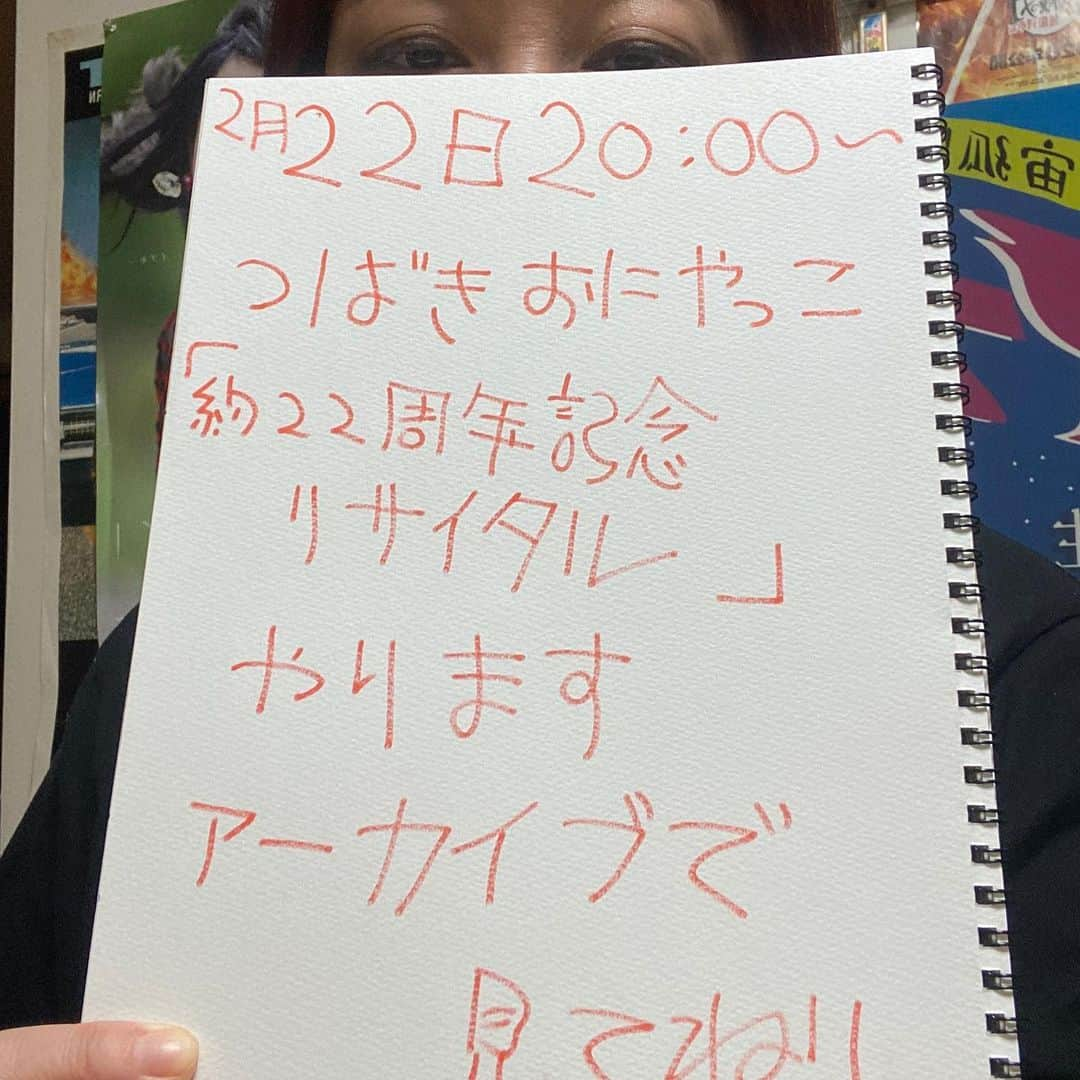 2月22日20:00〜
つばきおにやっこ
「約22周年記念
リサイタル」
やります
アーカイブで
見てね!!
宙狐